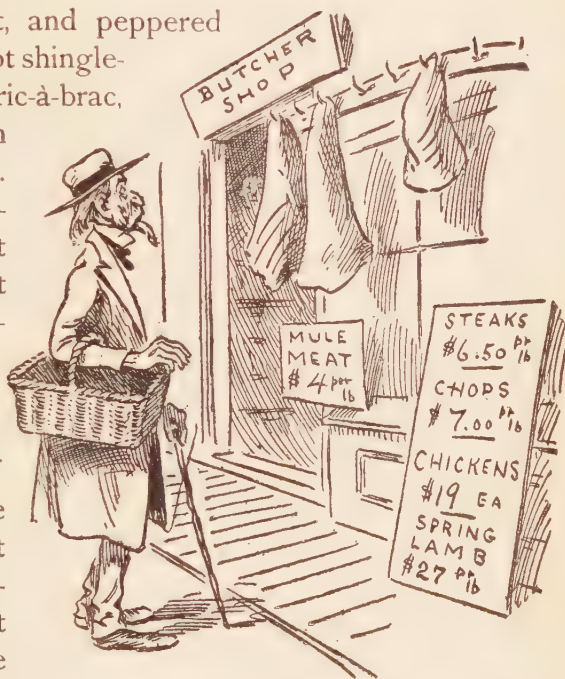 t, and peppered
ot shingle-
ric-à-brac,
n
.
-
t
t
-
e
t
-
t
e
BUTCHER
SHOP
MULE
MEAT
$4 per
lb
STEAKS
$6.50 pr
lb
CHOPS
$7.00 pr
lb
CHICKENS
$19 EA
SPRING
LAMB
$27 pr
lb